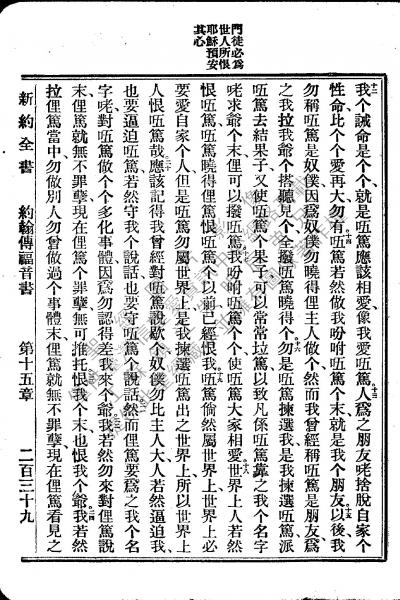 門徒必爲
世人所恨
耶穌預安
其心
十二我个誡命是个个、就是㕶篤應該相愛、像我愛㕶篤、十三人爲之朋友咾捨脫自家个
性命、比个个愛再大勿有、十四㕶篤若然做我吩咐㕶篤个末、就是我个朋友、十五以後我
勿稱㕶篤是奴僕、因爲奴僕勿曉得俚主人做个、然而我曾經稱㕶篤是朋友、爲
之我拉我爺个搭聽見个、全撥㕶篤曉得个、十六勿是㕶篤揀選我、是我揀選㕶篤、派
㕶篤去結果子、又使㕶篤个果子、可以常常垃篤、以致凡係㕶篤靠之我个名字
咾求爺个末、俚可以撥㕶篤、十七我吩咐㕶篤个个、使㕶篤大家相愛、十八世界上人若然
恨㕶篤、㕶篤曉得俚篤恨㕶篤个以前已經恨我、十九㕶篤倘然屬世界上、世界上必
要愛自家个人、但是㕶篤勿屬世界上、是我揀選㕶篤出之世界上、所以世界上
人恨㕶篤哉、二十應該記得我曾經對㕶篤說歇个、奴僕勿比主人大、人若然逼迫我、
也要逼迫㕶篤、若然守我个說話、也要守㕶篤个說話、然而俚篤要爲之我个名
字咾、對㕶篤做个个多化事體、因爲勿認得差我來个爺、我若然勿來對俚篤說
末、俚篤就無不罪孽、現在俚篤个罪孽無可推托、恨我个末、也恨我个爺、二四我若然
拉俚篤當中勿做別人勿曾做過个事體末、俚篤就無不罪孽、現在俚篤看見之
新約全書 約翰傳福音書 第十五章 二百三十九